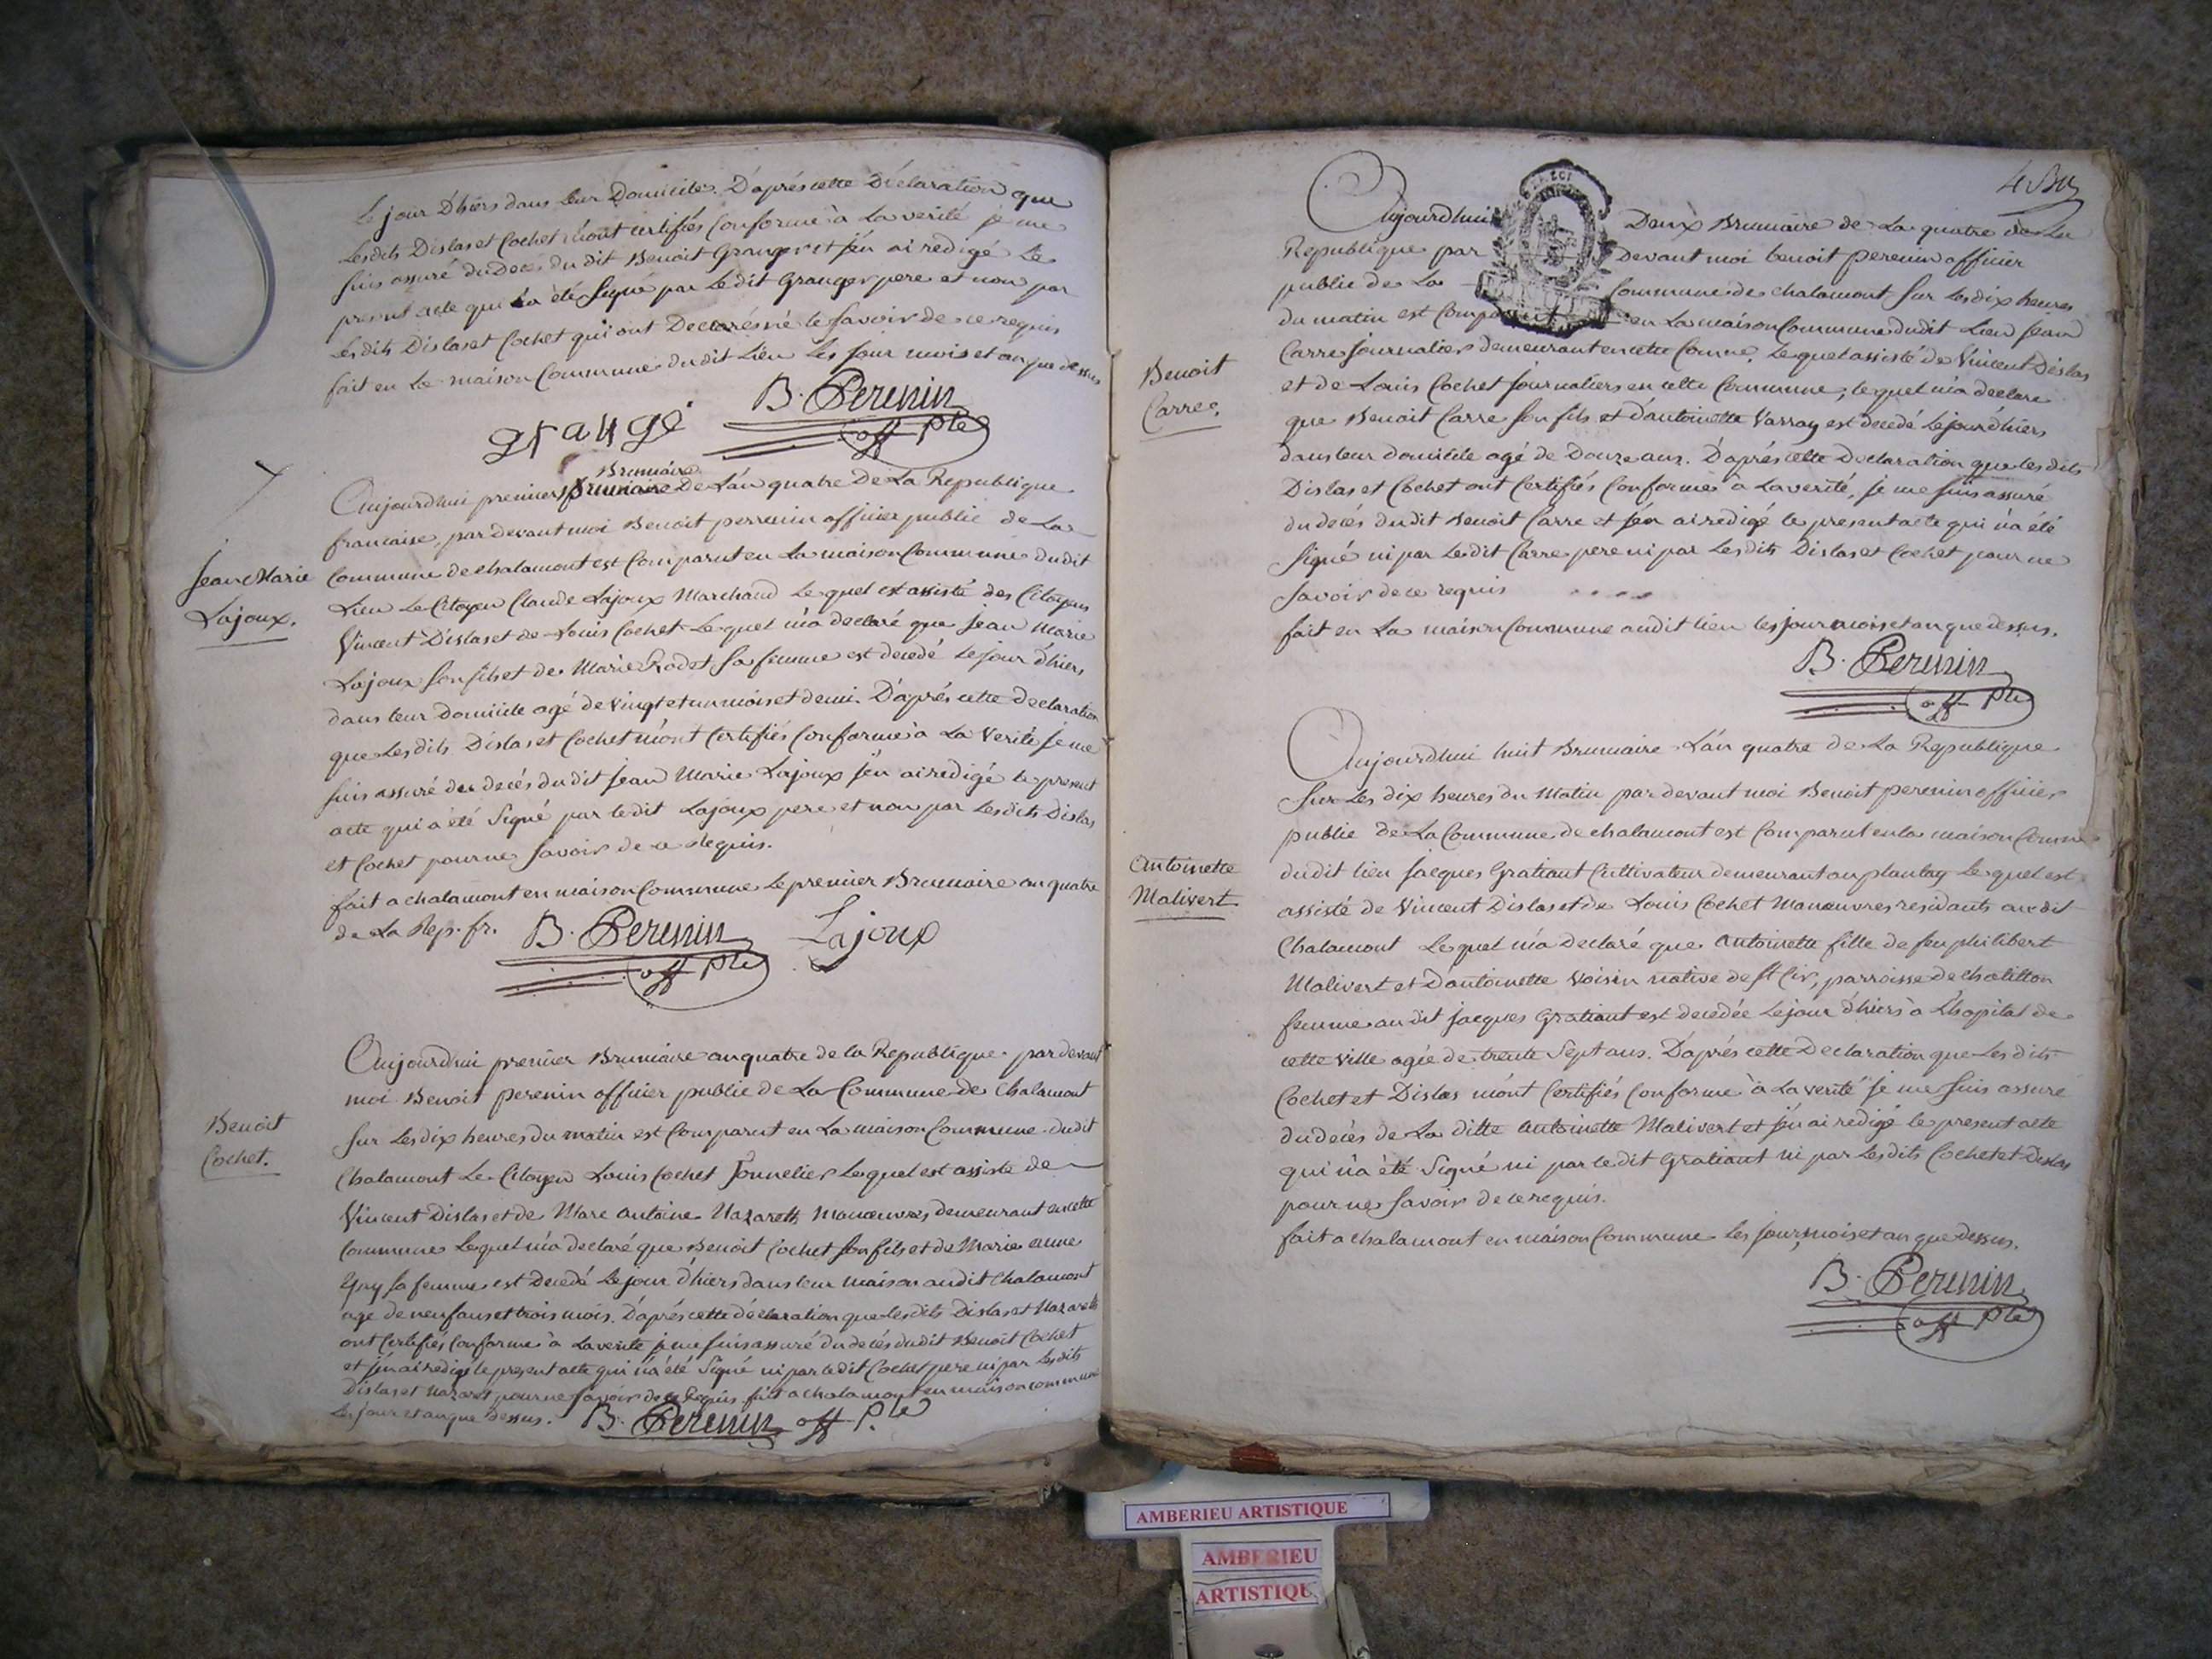 Le jour D'hiers dans leur Domicile. D'après cette Déclaration que
Lesdits Dislas et Cochet m'ont certifiés Conforme à La verité je me
suis assuré du Decé du dit Benoit Granger et j'en ai redigé Le
present acte qui a été signé par Le dit Granger pere et non par
Les dits Dislas et Cochet qui ont Declarés ne le savoir de ce requis
fait en La maison Commune dudit Lieu Les jour mois et an que dessus
grange B. Perenin
off. ple
Brumaire
Aujourdhui premier Brumaire De L'an quatre De La Republique
francaise, par devant moi Benoit perrenin officier public de La
Jean Marie
Lajoux.
Commune de chalamont est Comparut en La maison Commune dudit
Lieu Le Citoyen Claude Lajoux Marchand Lequel est assisté des Citoyens
Vincent Dislas et de Louis Cochet Lequel m'a declaré que Jean Marie
Lajoux son fils et de Marie Rodet sa femme est decedé Le jour d'hiers
dans leur Domicile agé de vingt et un mois et demi. D'après cette declaration
que Les dits Dislas et Cochet m'ont Certifiés Conforme à La verité je me
suis assuré du decés du dit Jean Marie Lajoux j'en ai redigé le present
acte qui a été Signé par le dit Lajoux pere et non par Les dits Dislas
et Cochet pour ne savoir de ce Requis.
fait a chalamont en maison Commune Le premier Brumaire an quatre
de La Rep. fr. B. Perenin Lajoux
off. ple
Aujourdhui premier Brumaire an quatre de la Republique par devant
moi Benoit perenin officier public de La Commune de Chalamont
Benoit
Cochet.
sur Les dix heures du matin est Comparut en La maison Commune dudit
Chalamont Le Citoyen Louis Cochet Tonnelier Lequel est assisté de
Vincent Dislas et de Marc Antoine Nazareth manœuvres demeurant en cette
Commune Lequel m'a declaré que Benoit Cochet son fils et de Marie anne
sa femme est Decedé Le jour d'hiers dans leur maison audit chalamont
agé de neuf ans et trois mois. D'après cette déclaration que les dits Dislas et Nazareth
ont Certifiés Conforme à La verité je me suis assuré du decés dudit Benoit Cochet
et j'en ai redigé le present acte qui n'a été Signé ni par le dit Cochet pere ni par Les dits
Dislas et Nazaret pour ne savoir de ce Requis fait a chalamont en maison commune
Les jour et an que Dessus. B. Perenin off. P.le
Aujourdhui Deux Brumaire de La quatre de La
Republique par Devant moi benoit perenin officier
public de La Commune de chalamont sur Les dix heures
du matin est Comparut en La maison Commune dudit Lieu Jean
Benoit
Carre.
Carre journalier demeurant en cette Comne. Lequel assisté de Vincent Dislas
et de Louis Cochet journaliers en cette Commune, lequel m'a declaré
que Benoit Carre son fils et d'antoinette Varray est decedé Le jour d'hiers
dans leur domicile agé de Douze ans. D'après cette Declaration que les dits
Dislas et Cochet ont Certifiés Conforme à La verité, je me suis assuré
du decés du dit Benoit Carre et j'en ai redigé le present acte qui n'a été
signé ni par Le dit Carre pere ni par Les dits Dislas et Cochet pour ne
savoir de ce requis
fait en La maison Commune audit lieu les jour mois et an que dessus.
B. Perenin
off. ple
Aujourdhui huit Brumaire L'an quatre de La Republique
sur Les dix heures du Matin par devant moi Benoit perenin officier
public de La Commune de chalamont est Comparut en la maison Comne
Antoinette
Malivert
dudit lieu Jacques Gratiant Cultivateur demeurant au plantay Lequel est
assisté de Vincent Dislas et de Louis Cochet Manœuvres residants audit
Chalamont Lequel m'a declaré que Antoinette fille de feu philibert
Malivert et D'antoinette Voisin native de St Cir, parroisse de chatillon
femme audit Jacques Gratiant est decedée Le jour d'hiers à L'hopital de
cette ville agée de trente Sept ans. D'après cette Declaration que Les dits
Cochet et Dislas m'ont Certifiés Conforme à La verité je me suis assuré
du decés de La ditte Antoinette Malivert et j'en ai redigé le present acte
qui n'a été Signé ni par le dit Gratiant ni par Les dits Cochet et Dislas
pour ne savoir de ce requis.
fait a chalamont en maison Commune Les jour, mois et an que dessus.
B. Perenin
off. ple
AMBERIEU ARTISTIQUE
AMBERIEU
ARTISTIQUE